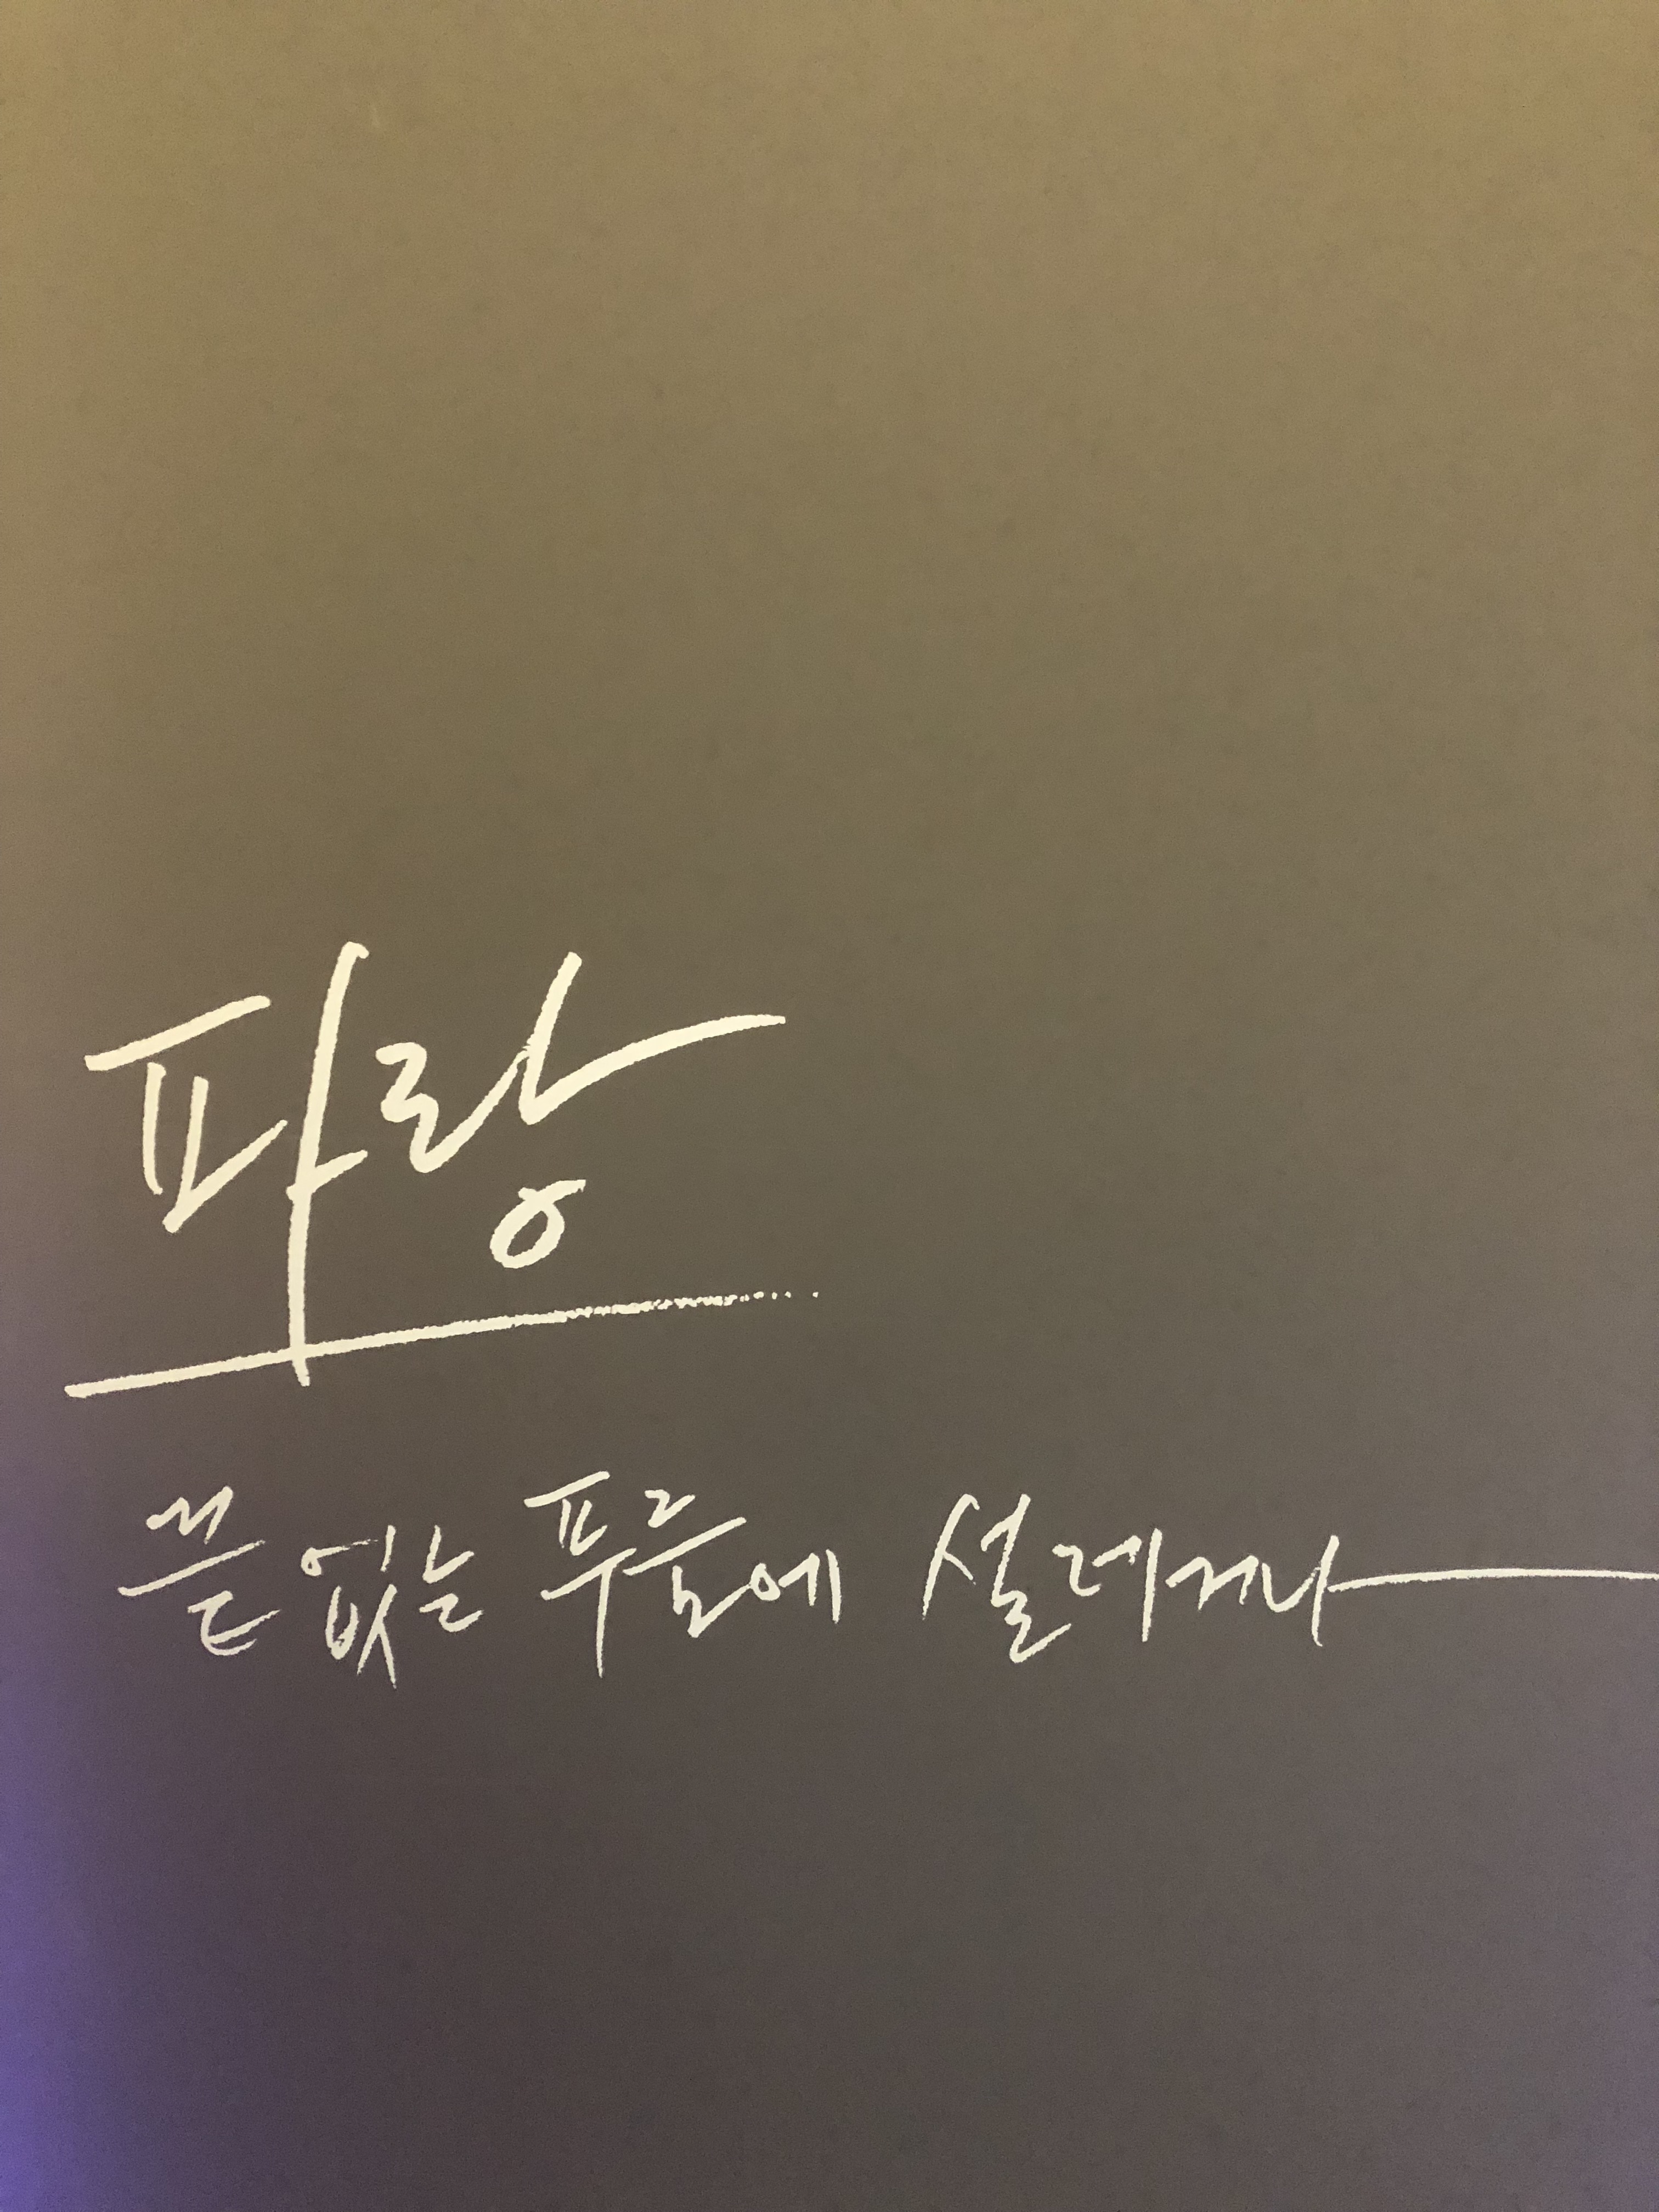 파랑
끝없는 푸름에 설레거나